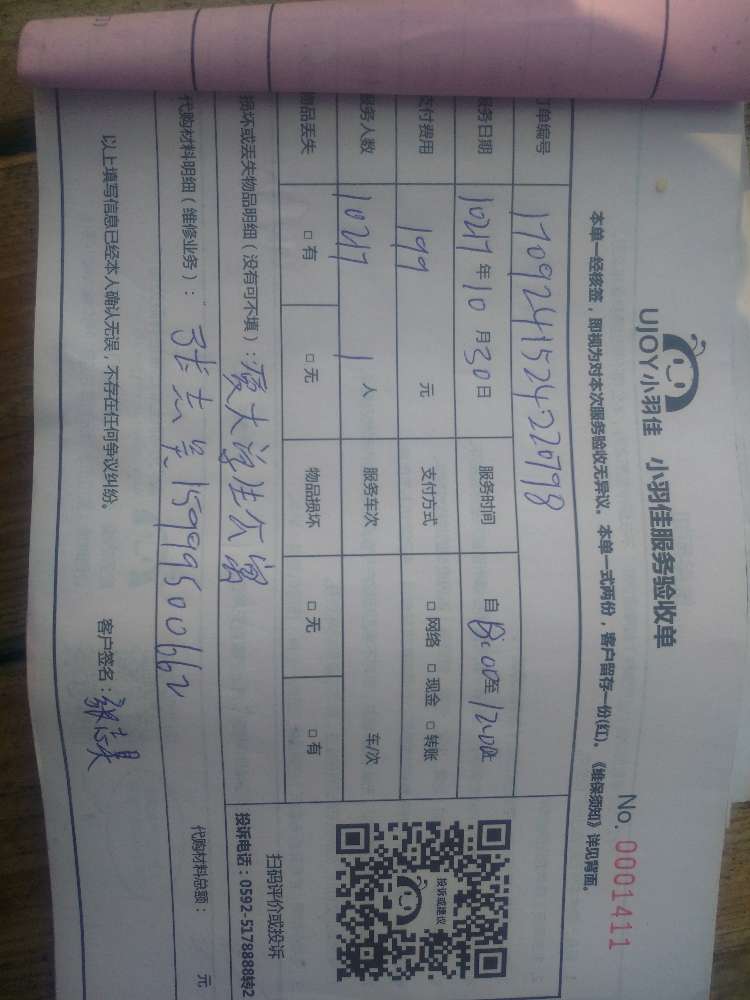 UJOY小羽佳 小羽佳服务验收单
No. 0001411
本单一经核签，即视为对本次服务验收无异议。本单一式两份，客户留存一份(红)。《维保须知》详见背面。
订单编号 170924152422 0798
服务日期 1024 年 10 月 30 日 服务时间 自 8:00 至 12:00 止
支付费用 199 元 支付方式 □ 网络 □ 现金 □ 转账
服务人数 1 人 服务车次 车/次
物品丢失 □ 有 □ 无 物品损坏 □ 无 □ 有
损坏或丢失物品明细（没有可不填）：厦大学生公寓
代购材料明细（维修业务）： 15999500662
代购材料总额： 元
以上填写信息已经本人确认无误，不存在任何争议纠纷。 客户签名：张志昊
投诉或建议
扫码评价或投诉
投诉电话：0592-5178888转2